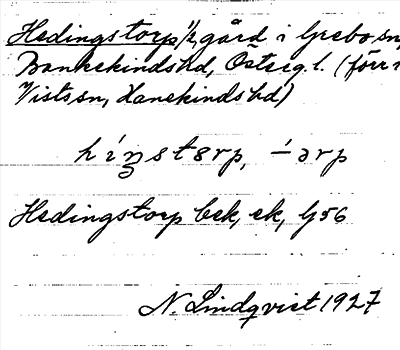 Hedingstorp 1/2, gård i Grebo sn,
Bankekinds hd, Österg. l. (förr i
Vists sn, Hanekinds hd)
híŋstɵrp, -́ərp
Hedingstorp bek, ek, G 56
N. Lindqvist 1927